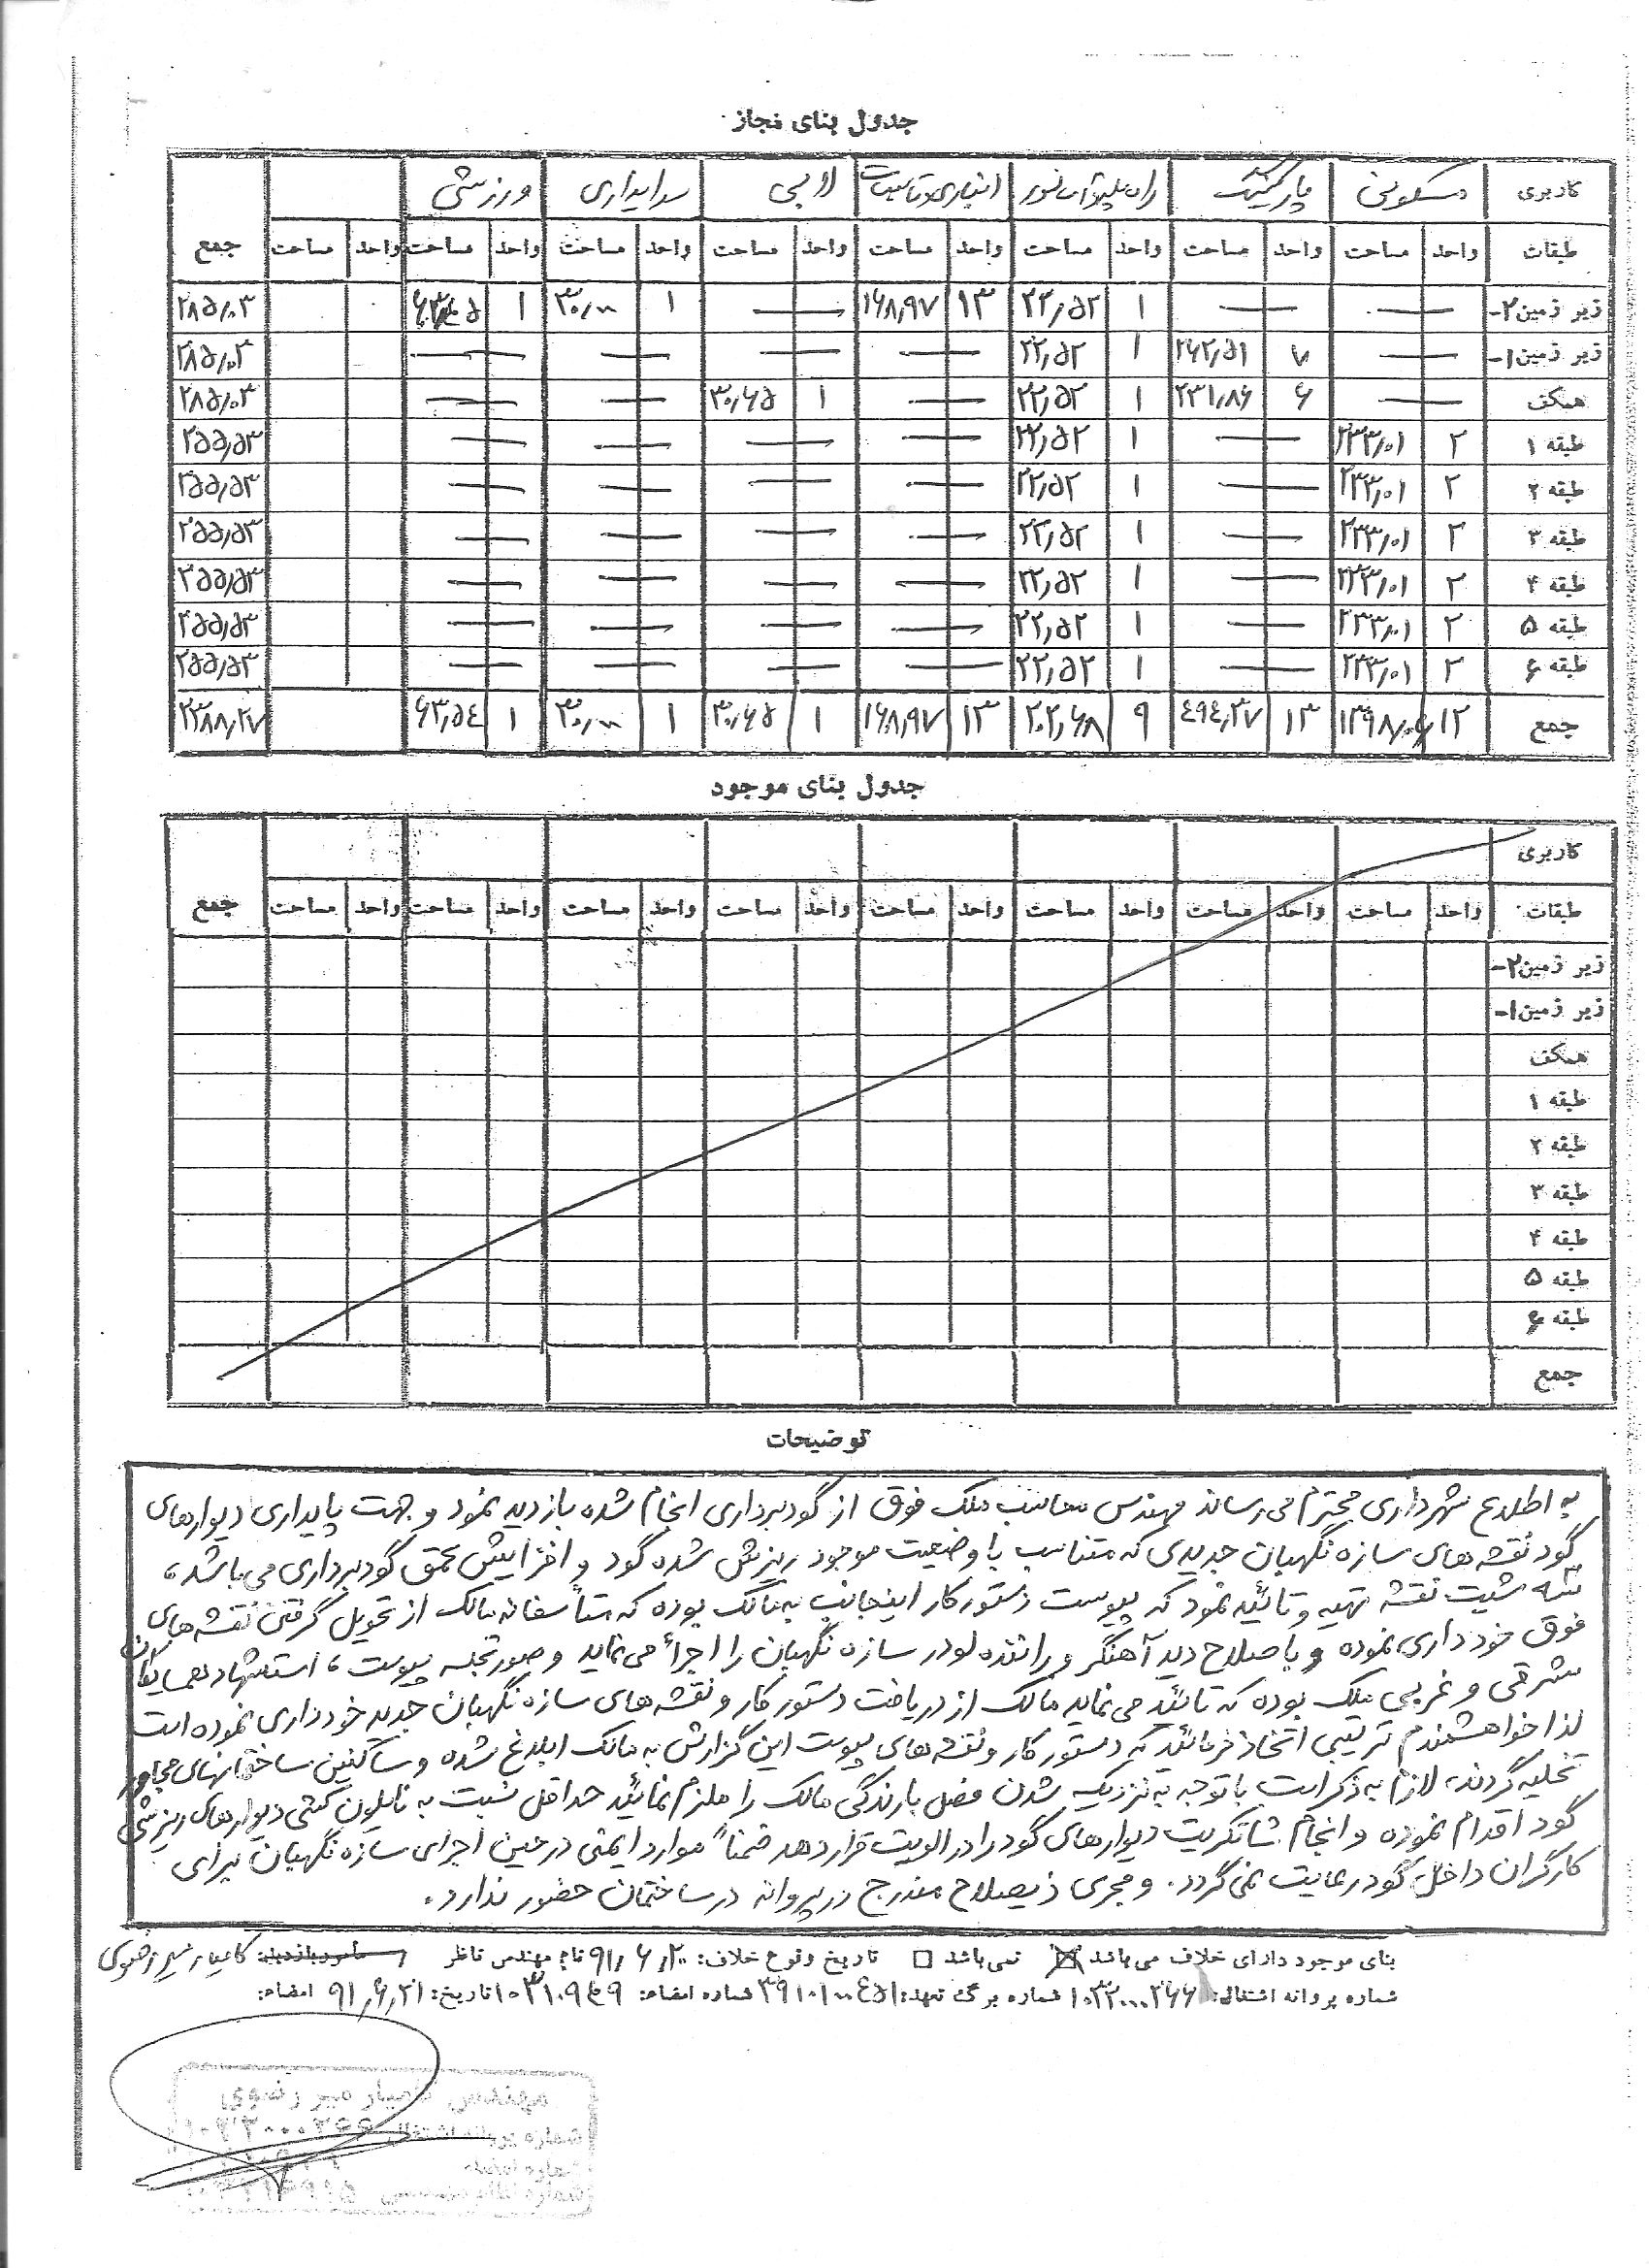 جدول بنای مجاز
کاربری مسکونی پارکینگ راه پله و آسانسور انباری و تاسیسات لابی سرایداری ورزشی
طبقات واحد مساحت واحد مساحت واحد مساحت واحد مساحت واحد مساحت واحد مساحت واحد مساحت واحد مساحت جمع
زیر زمین ۲- — — ۱ ۲۲٫۵۲ ۱۳ ۱۶۸٫۹۷ — ۱ ۳۰٫۰۰ ۱ ۲۸۵٫۰۳
زیر زمین ۱- — ۷ ۲۶۲٫۵۱ ۱ ۲۲٫۵۲ — — — — ۲۸۵٫۰۳
همکف — ۶ ۲۳۱٫۸۶ ۱ ۲۲٫۵۲ — ۱ ۳۰٫۶۵ — — ۲۸۵٫۰۳
طبقه ۱ ۲ ۲۳۳٫۰۱ — ۱ ۲۲٫۵۲ — — — — ۲۵۵٫۵۳
طبقه ۲ ۲ ۲۳۳٫۰۱ — ۱ ۲۲٫۵۲ — — — — ۲۵۵٫۵۳
طبقه ۳ ۲ ۲۳۳٫۰۱ — ۱ ۲۲٫۵۲ — — — — ۲۵۵٫۵۳
طبقه ۴ ۲ ۲۳۳٫۰۱ — ۱ ۲۲٫۵۲ — — — — ۲۵۵٫۵۳
طبقه ۵ ۲ ۲۳۳٫۰۱ — ۱ ۲۲٫۵۲ — — — — ۲۵۵٫۵۳
طبقه ۶ ۲ ۲۳۳٫۰۱ — ۱ ۲۲٫۵۲ — — — — ۲۵۵٫۵۳
جمع ۱۲ ۱۳۹۸٫۰۶ ۱۳ ٤۹٤٫۳۷ ۹ ۲۰۲٫۶۸ ۱۳ ۱۶۸٫۹۷ ۱ ۳۰٫۶۵ ۱ ۳۰٫۰۰ ۱ ۶۳٫۵٤ ۲۳۸۸٫۲۷
جدول بنای موجود
کاربری
طبقات واحد مساحت واحد مساحت واحد مساحت واحد مساحت واحد مساحت واحد مساحت واحد مساحت واحد مساحت جمع
زیر زمین ۲-
زیر زمین ۱-
همکف
طبقه ۱
طبقه ۲
طبقه ۳
طبقه ۴
طبقه ۵
طبقه ۶
جمع
توضیحات
به اطلاع شهرداری محترم می رساند مهندس محاسب ملک فوق از گودبرداری انجام شده بازدید نمود و جهت پایداری دیوارهای
گود نقشه های سازه نگهبان جدیدی که متناسب با وضعیت موجود ریزش شده گود و افزایش عمق گودبرداری می باشد،
سه شیت نقشه تهیه و تائید نمود که پیوست دستور کار اینجانب به مالک بوده که متأسفانه مالک از تحویل گرفتن نقشه های
فوق خودداری نموده و با صلاح دید آهنگر و راننده لودر سازه نگهبان را اجراء می نماید و صورتجلسه پیوست، استشهاد همسایگان
شرقی و غربی ملک بوده که تائید می نماید مالک از دریافت دستور کار و نقشه های سازه نگهبان جدید خودداری نموده است
لذا خواهشمندم ترتیبی اتخاذ فرمائید که دستور کار و نقشه های پیوست این گزارش به مالک ابلاغ شده و ساکنین ساختمانهای مجاور
تخلیه گردند، لازم به ذکر است با توجه به نزدیک شدن فصل بارندگی مالک را ملزم نمائید حداقل نسبت به نایلون کشی دیوارهای ریزشی
گود اقدام نموده و انجام شاتکریت دیوارهای گود را در الویت قرار دهد ضمناً موارد ایمنی در حین اجرای سازه نگهبان برای
کارگران داخل گود رعایت نمی گردد. و مجری ذیصلاح مندرج در پروانه در ساختمان حضور ندارد.
بنای موجود دارای خلاف می باشد ☒ نمی باشد ☐ تاریخ وقوع خلاف: ۹۱٫۶٫۲۰ نام مهندس ناظر کامیار میررضوی
شماره پروانه اشتغال: ۱۰۳۲۰۰۰۲۶۶ شماره برگ تعهد: ۳۹۱۰۱۰۰٤۵۱ شماره امضاء: تاریخ: ۹۱٫۶٫۲۱ امضاء:
مهندس کامیار میررضوی
شماره پروانه اشتغال
شماره امضاء
شماره نظام مهندسی